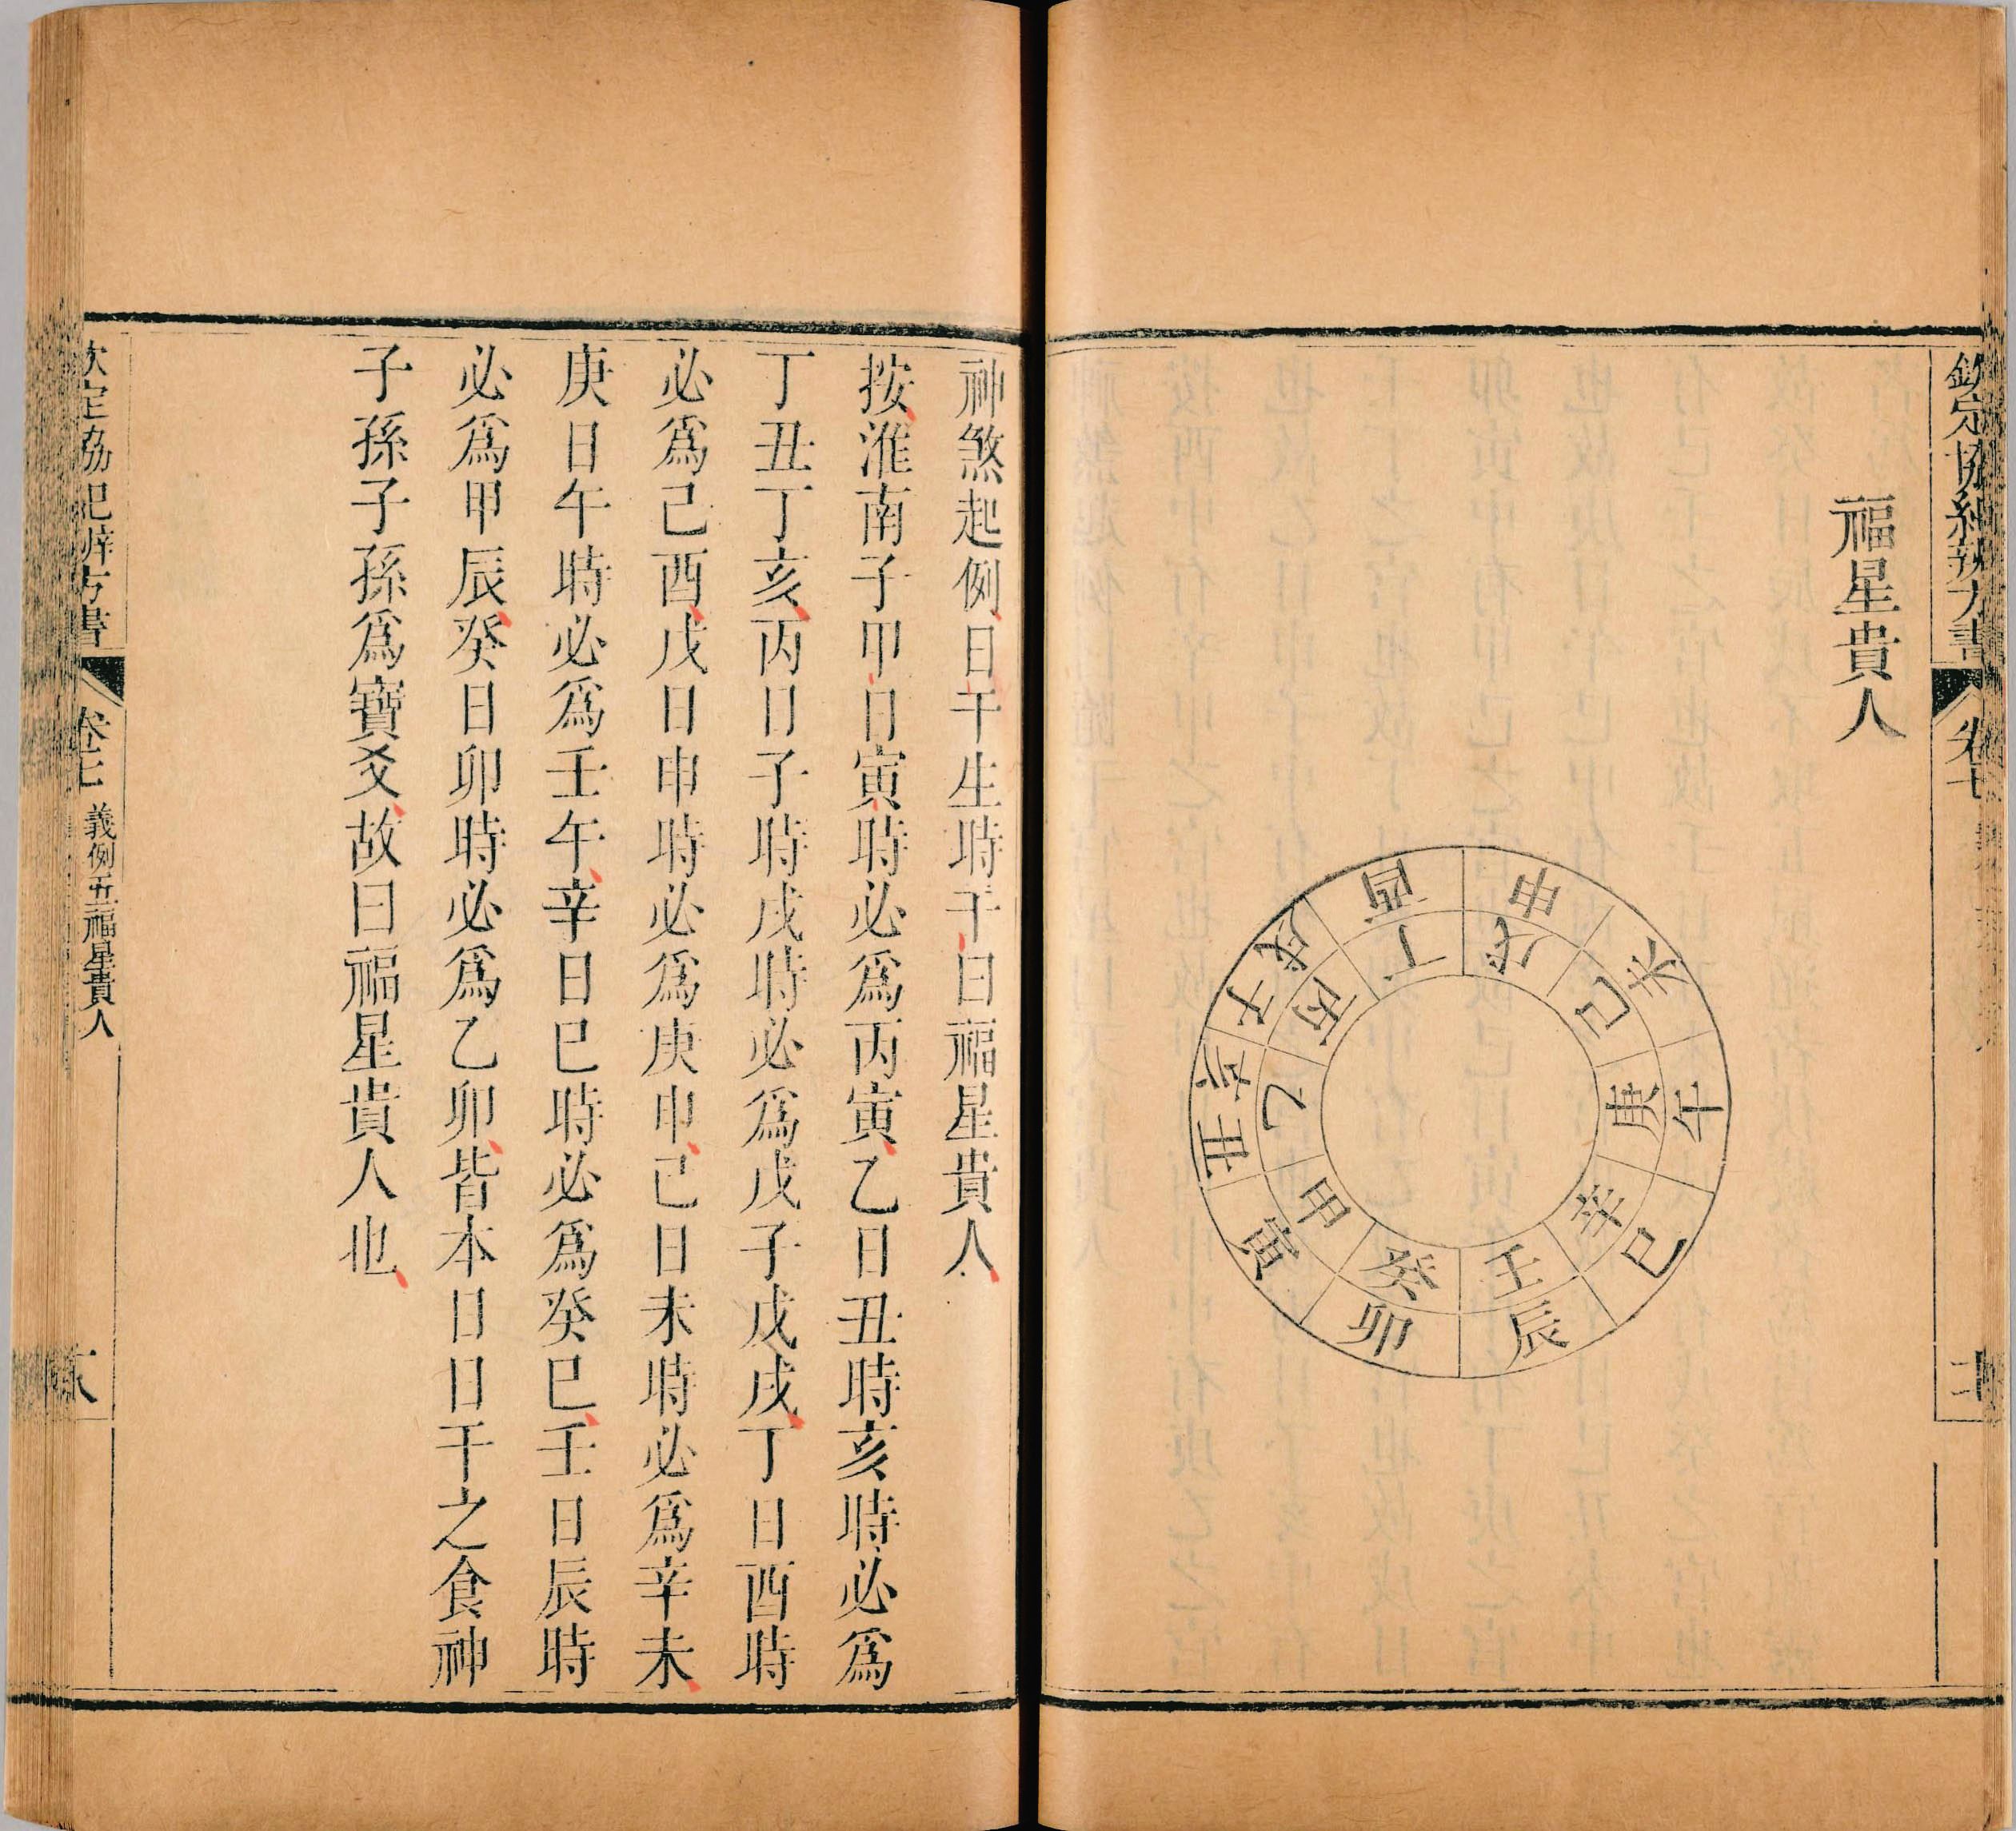 欽定協紀辨方書 卷七
福星貴人
申 未 午 巳 辰 卯 寅 丑 亥 子 戌 酉
戊 己 庚 辛 壬 癸 甲 乙 丙 丁
神煞起例日干生時干曰福星貴人
按淮南子甲日寅時必爲丙寅乙日丑時亥時必爲
丁丑丁亥丙日子時戌時必爲戊子戊戌丁日酉時
必爲己酉戊日申時必爲庚申己日未時必爲辛未
庚日午時必爲壬午辛日巳時必爲癸巳壬日辰時
必爲甲辰癸日卯時必爲乙卯皆本日日干之食神
子孫子孫爲寶爻故曰福星貴人也
欽定協紀辨方書 卷七 義例五 福星貴人